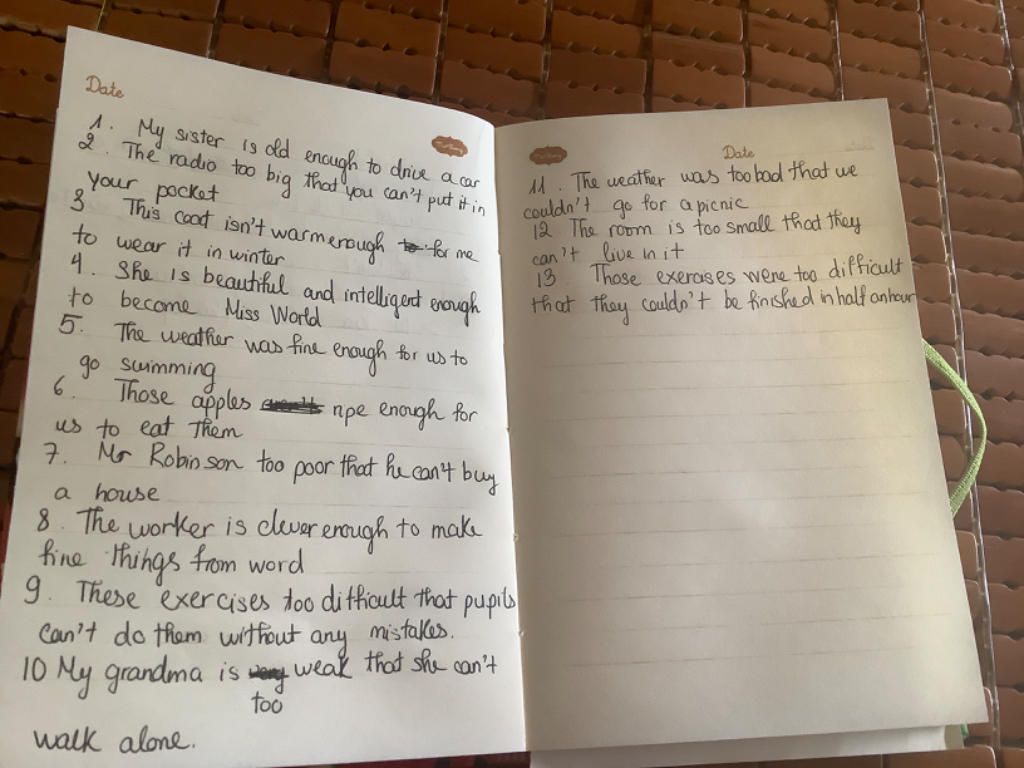 Date
1. My sister is old enough to drive a car
2. The radio too big that you can't put it in
your pocket
3 This coat isn't warm enough for me
to wear it in winter
4. She is beautiful and intelligent enough
to become Miss World
5. The weather was fine enough for us to
go swimming
6. Those apples ripe enough for
us to eat them
7. Mr Robinson too poor that he can't buy
a house
8. The worker is clever enough to make
fine things from word
9. These exercises too difficult that pupils
can't do them without any mistakes.
10 My grandma is very weak that she can't
too
walk alone.
Date
11. The weather was too bad that we
couldn't go for a picnic
12 The room is too small that they
can't live in it
13 Those exercises were too difficult
that they couldn't be finished in half an hour